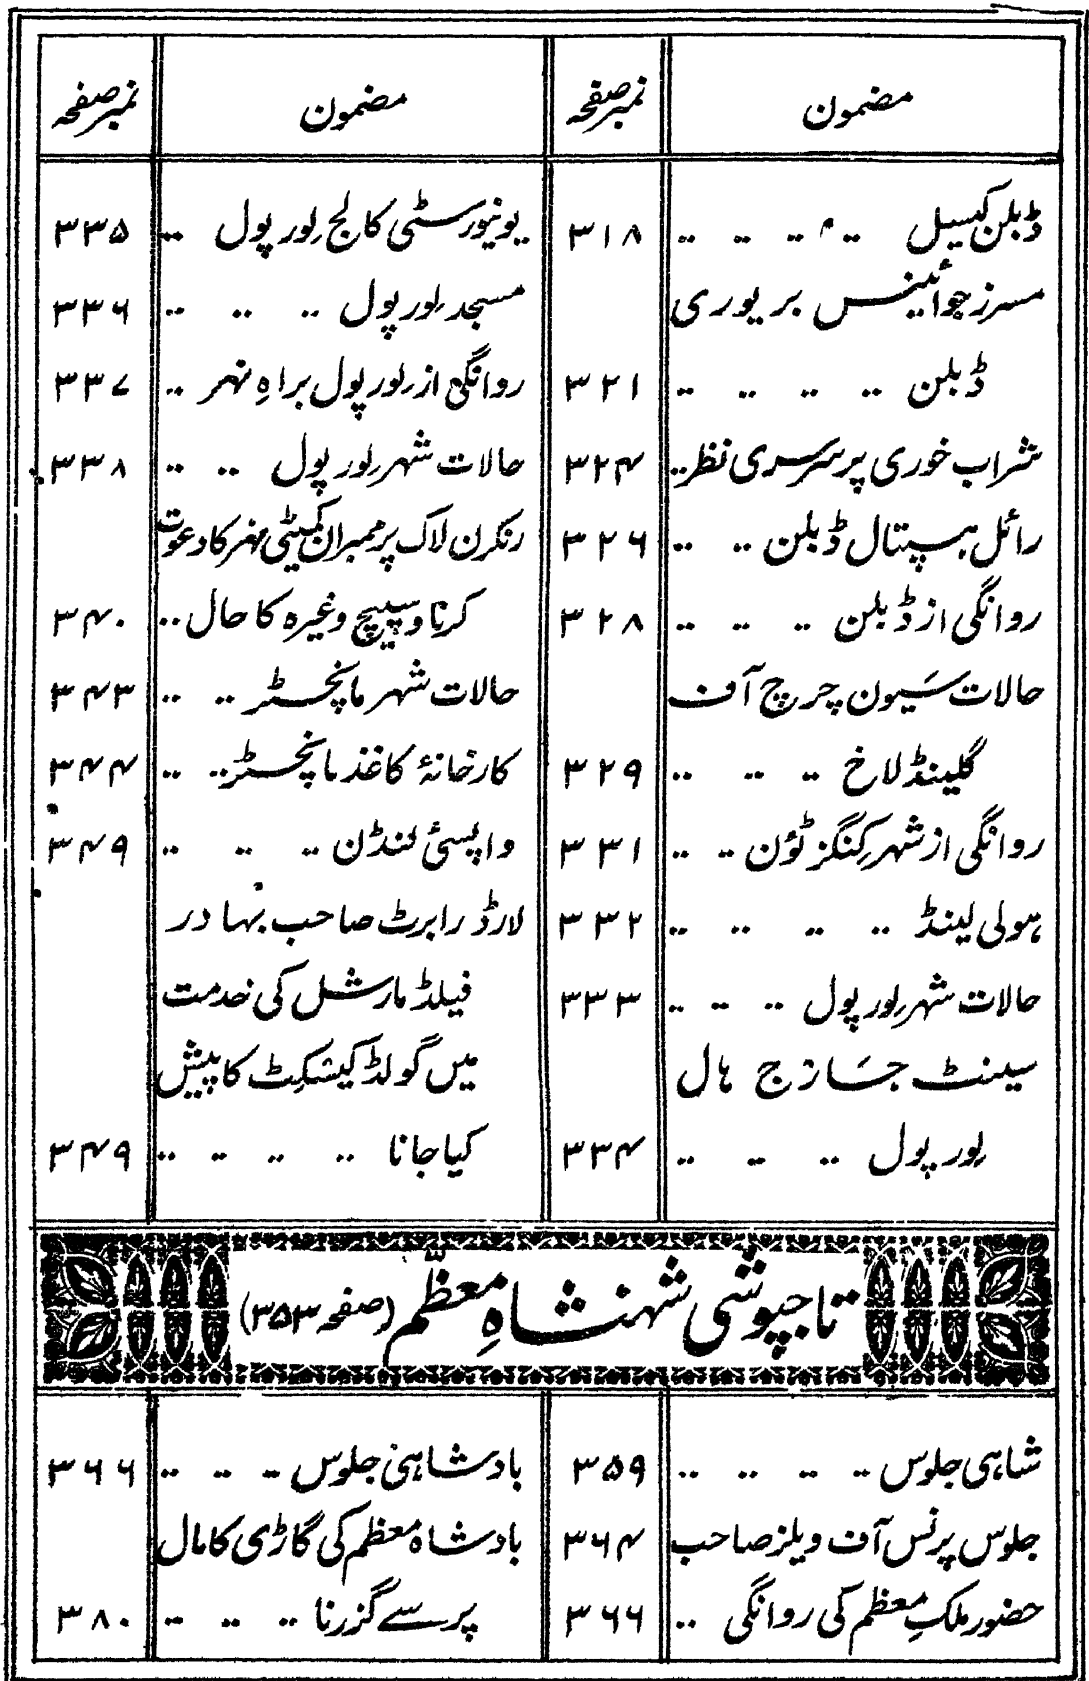 مضمون نمبر صفحہ
ڈبلن کیسیل ۳۱۸
مسرز جوائینس بریوری
ڈبلن ۳۲۱
شراب خوری پر سرسری نظر ۳۲۴
رائل ہسپتال ڈبلن ۳۲۶
روانگی از ڈبلن ۳۲۸
حالات سَیون چرچ آف
گلینڈلاخ ۳۲۹
روانگی از شہر کِنگز ٹؤن ۳۳۱
ہولی لینڈ ۳۳۲
حالات شہر لور پول ۳۳۳
سینٹ جارج ہال
لور پول ۳۳۴
مضمون نمبر صفحہ
یونیورسٹی کالج لور پول ۳۳۵
مسجد لور پول ۳۳۶
روانگی از لور پول براہِ نہر ۳۳۷
حالات شہر لور پول ۳۳۸
رنکرن لاک پر ممبران کمیٹی نہر کا دعوت
کرنا و سپیچ وغیرہ کا حال ۳۴۰
حالات شہر مانچسٹر ۳۴۳
کارخانۂ کاغذ مانچسٹر ۳۴۴
واپسئ لنڈن ۳۴۹
لارڈ رابرٹ صاحب بہادر
فیلڈ مارشل کی خدمت
میں گولڈ کیسکِٹ کا پیش
کیا جانا ۳۴۹
تاجپوشی شہنشاہِ معظّم (صفحہ ۳۵۳)
شاہی جلوس ۳۵۹
جلوس پرنس آف ویلز صاحب ۳۶۴
حضور ملکِ معظم کی روانگی ۳۶۶
بادشاہی جلوس ۳۶۶
بادشاہ معظم کی گاڑی کا مال
پر سے گزرنا ۳۸۰